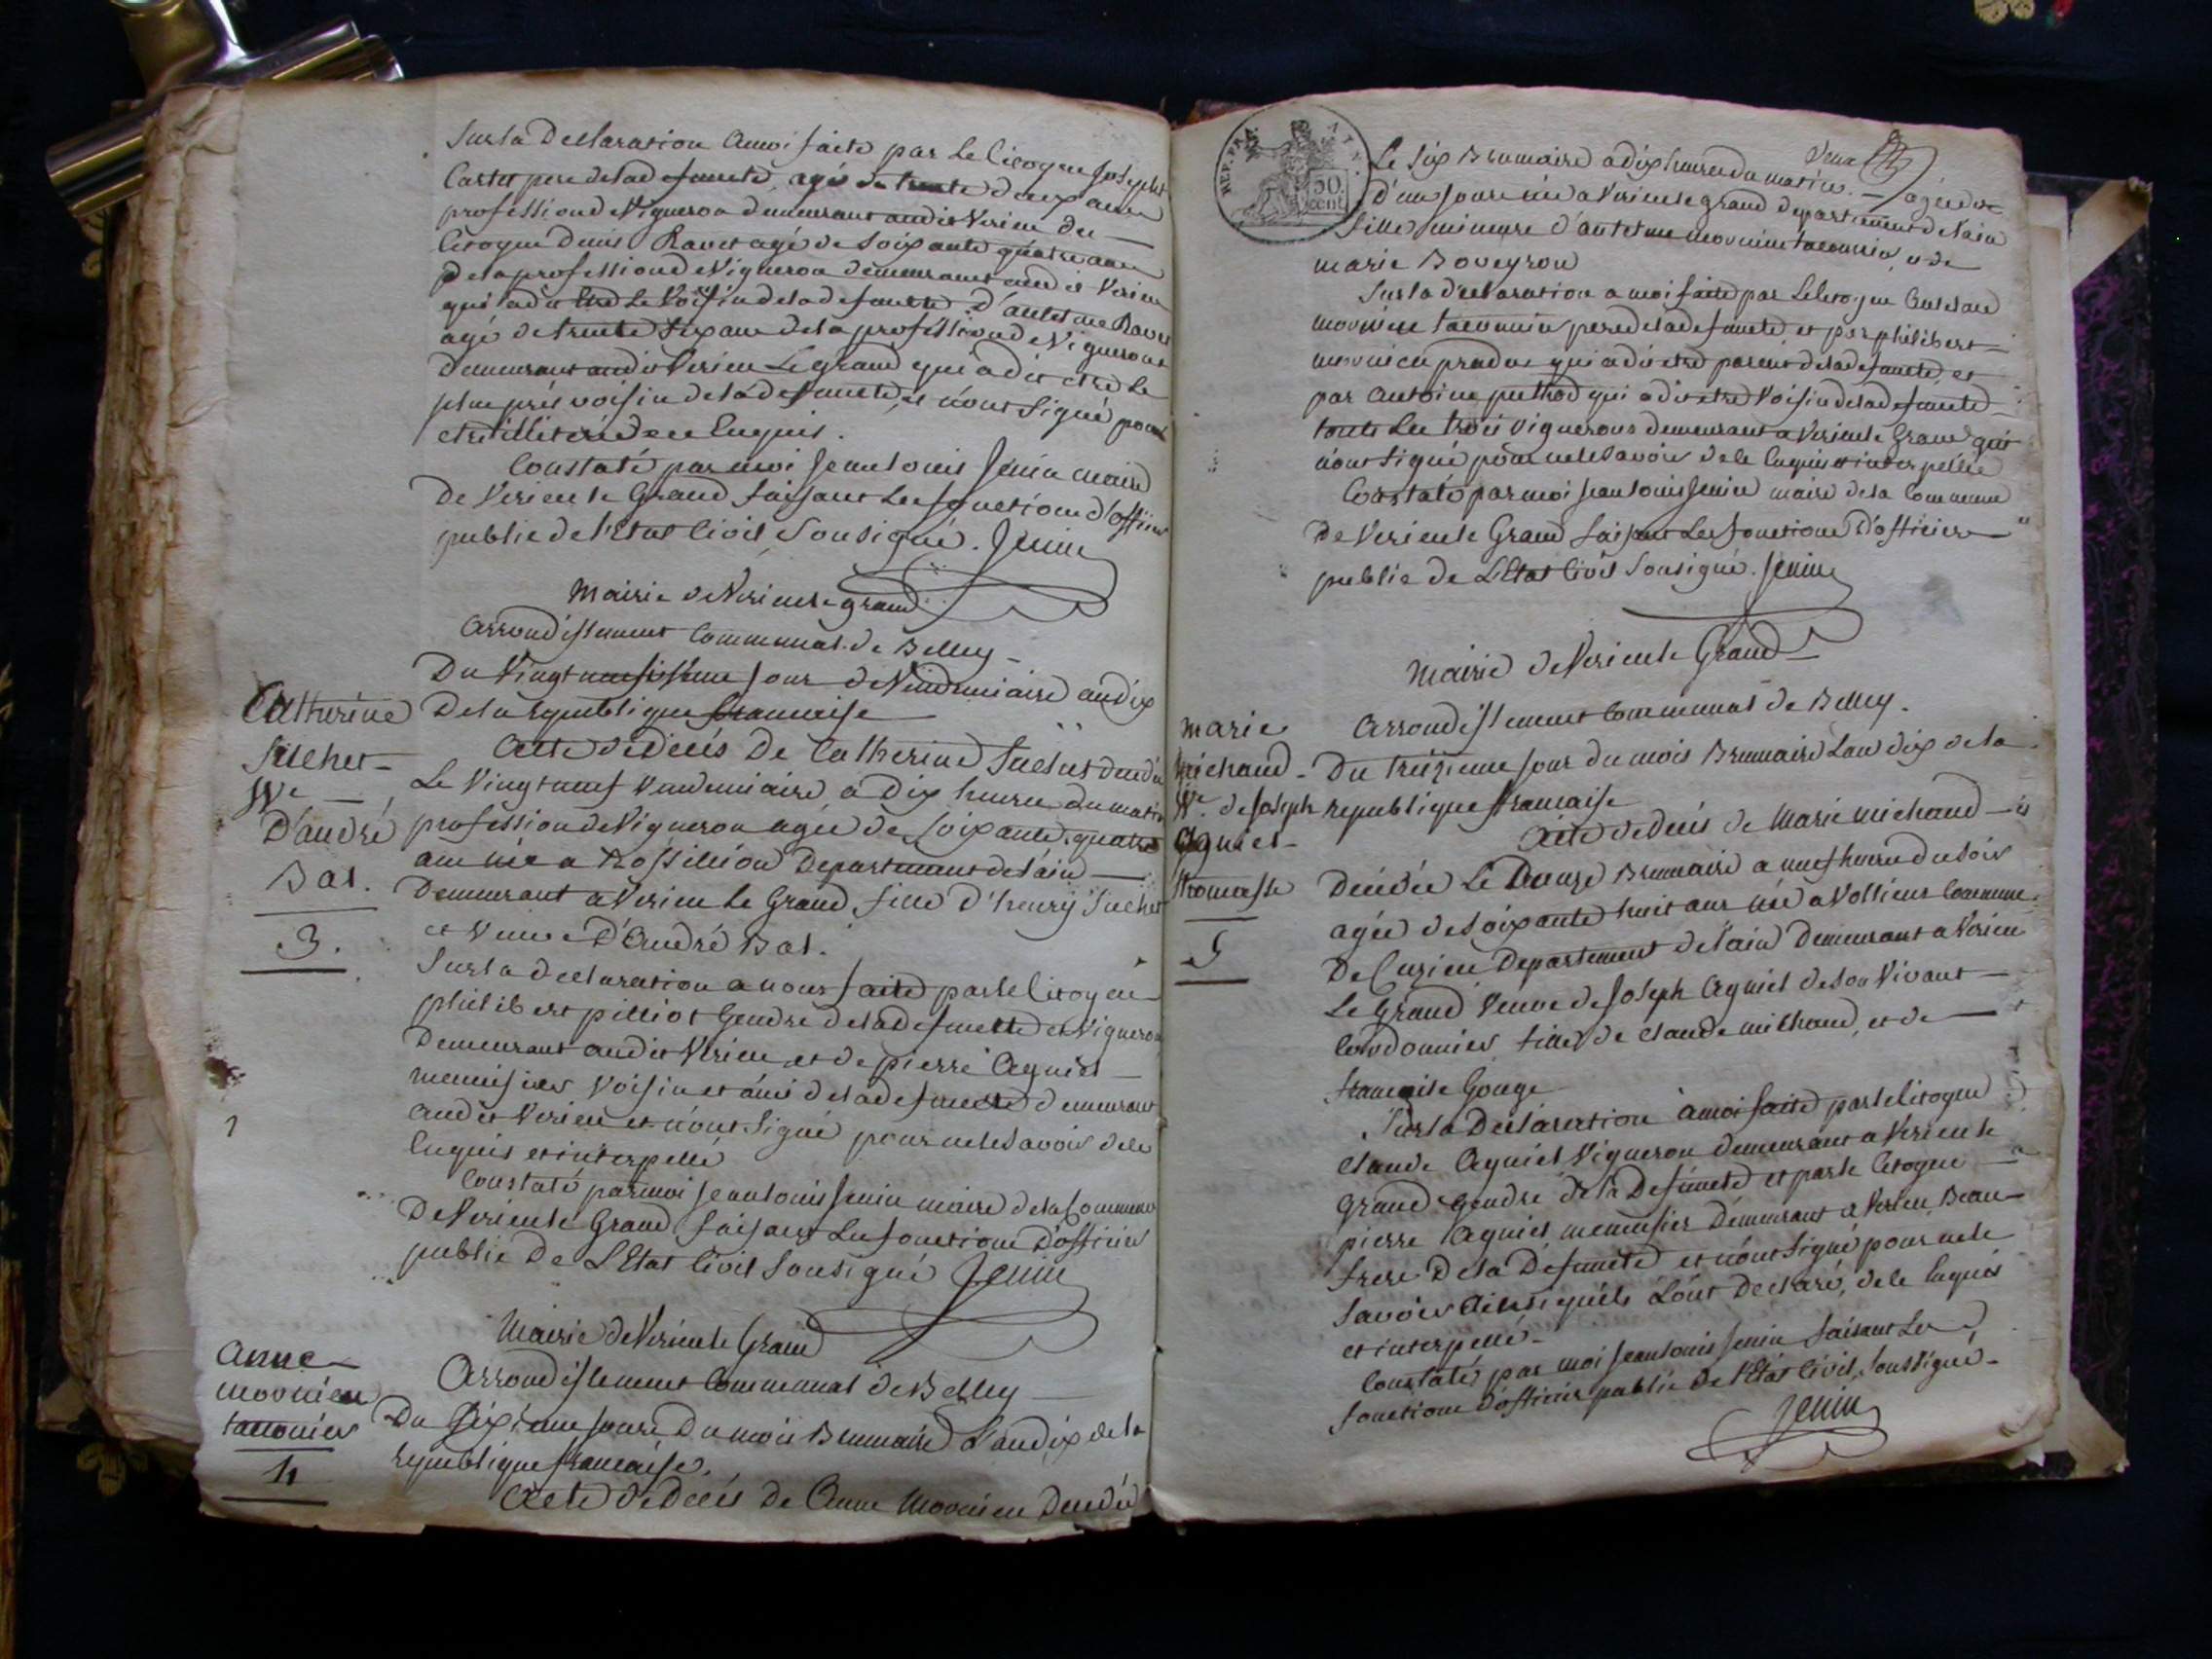 Sur la Declaration a moi faite par le Citoyen Joseph
Cartet pere de la defuncte, agé de trente deux ans
profession de Vigneron demeurant audit Virieu du
Citoyen Denis Ravet agé de Soixante quatre ans
de la profession de Vigneron demeurant audit Virieu
qui a dit être le Voisin de la defuncte d'antelme Ravet
agé de trente Six ans de la profession de Vigneron
demeurant audit Virieu Le grand qui a dit etre Le
plus près voisin de la defuncte, et n'ont Signé pour
etre illiteré de ce Enquis.
Constaté par moi Jean louis Jenin maire
De Virieu le Grand faisant Les fonctions d'officier
public de l'Etat Civil Sousigné. Jenin
Mairie de Virieu le grand
Arrondissement Communal de Belley
Du Vingt neufvième Jour de Vendemiaire an dix
De la republique francaise
Catherine
Suchet
Ve
D'andré
Bal.
3.
Acte de décés De Catherine Suchet décédée
Le Vingt neuf Vendemiaire, a Dix heures du matin
profession de Vigneron agée de Soixante quatre
ans née a Rossillion Departement de l'ain
Demeurant a Virieu le Grand, fille d'henry Suchet
et Veuve D'André Bal.
Sur la declaration a nous faite par le Citoyen
philibert pilliot Gendre de la defuncte et Vigneron
Demeurant audit Virieu, et de pierre Agniel
menuisier Voisin et ami de la defuncte demeurant
audit Virieu et n'ont Signé pour ne le Savoir de ce
Enquis et interpellé
Constaté par moi Jean louis Jenin maire de la Commune
De Virieu le Grand faisant Les fonctions D'officier
public De L'Etat Civil Sousigné Jenin
Mairie de Virieu le Grand
Arrondissement Communal de Belley
Anne
moonieu
4
Du Sixieme jour Du mois Brumaire L'an dix de la
republique francaise.
Acte de Décés De Anne Moonieu Decedée
REP. FRA.
50.
cent.
Le Six Brumaire a dix heures du matin. agée de
D'un jour née a Virieu le grand departement de l'ain
fille mineure d'antelme moonieu et de
marie Boveyron
Sur la declaration a moi faite par Le Citoyen antelme
moonieu pere de la defuncte et par philibert
moonieu qui a dit etre parent de la defuncte, et
par antoine puthod qui a dit etre Voisin de la defuncte
touts Les trois vignerons demeurant a Virieu le Grand qui
n'ont Signé pour ne le Savoir de ce Enquis et interpellé
Constaté par moi Jean louis Jenin maire de la Commune
De Virieu le Grand faisant Les fonctions D'officier
public de L'Etat Civil Sousigné. Jenin
Mairie de Virieu le Grand
Arrondissement Communal de Belley.
Marie
Michaud
Ve. de Joseph
Agniel
5
Du treizieme jour du mois Brumaire L'an dix de la
republique francaise
Acte de décés de Marie michaud
Décédée Le Douze Brumaire a neuf heures du Soir
agée de Soixante huit ans née a Vollien Commune
De Cuzieu Departement de l'ain Demeurant a Virieu
Le Grand Veuve de Joseph Agniel de Son Vivant
Cordonnier fille de Claude michaud, et de
francoise Gouge
Sur la Déclaration à moi faite par le Citoyen
Claude Agniel Vigneron demeurant a Virieu le
Grand Gendre de la Defuncte et par le Citoyen
pierre Agniel menuisier Demeurant a Virieu, Beau
frere De la Defuncte et n'ont Signé pour ne le
Savoir ainsi qu'ils L'ont Declaré, de ce Enquis
et interpellé
Constaté par moi Jean louis Jenin faisant Les
fonctions d'officier public De l'Etat Civil, Soussigné
Jenin